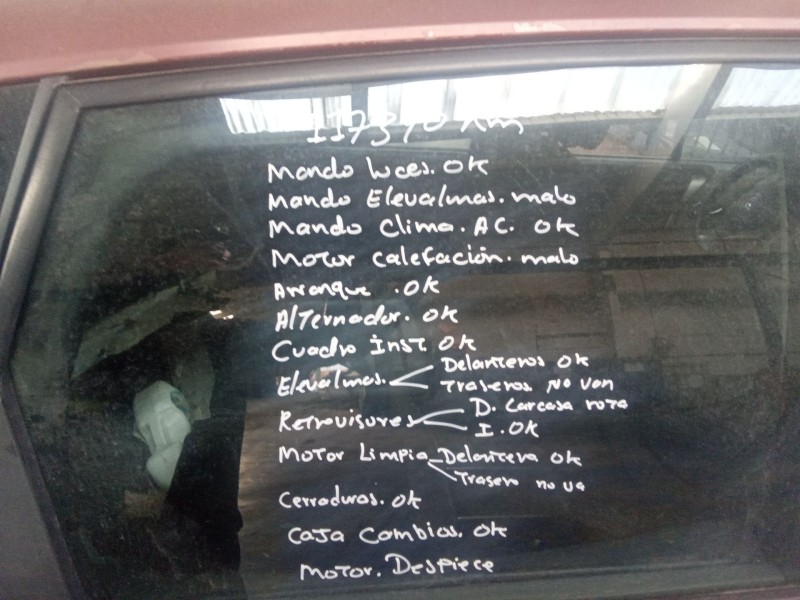 117370 Km
Mando luces. OK
Mando Elevalunas. malo
Mando Clima. AC. OK
Motor calefación. malo
Arranque . OK
Alternador. OK
Cuadro inst. OK
Elevalunas. Delanteros OK
Traseros NO van
Retrovisores D. Carcasa rota
I. OK
Motor Limpia Delantera OK
Trasero no va
Cerraduras. OK
Caja Cambios. OK
Motor. Despiece